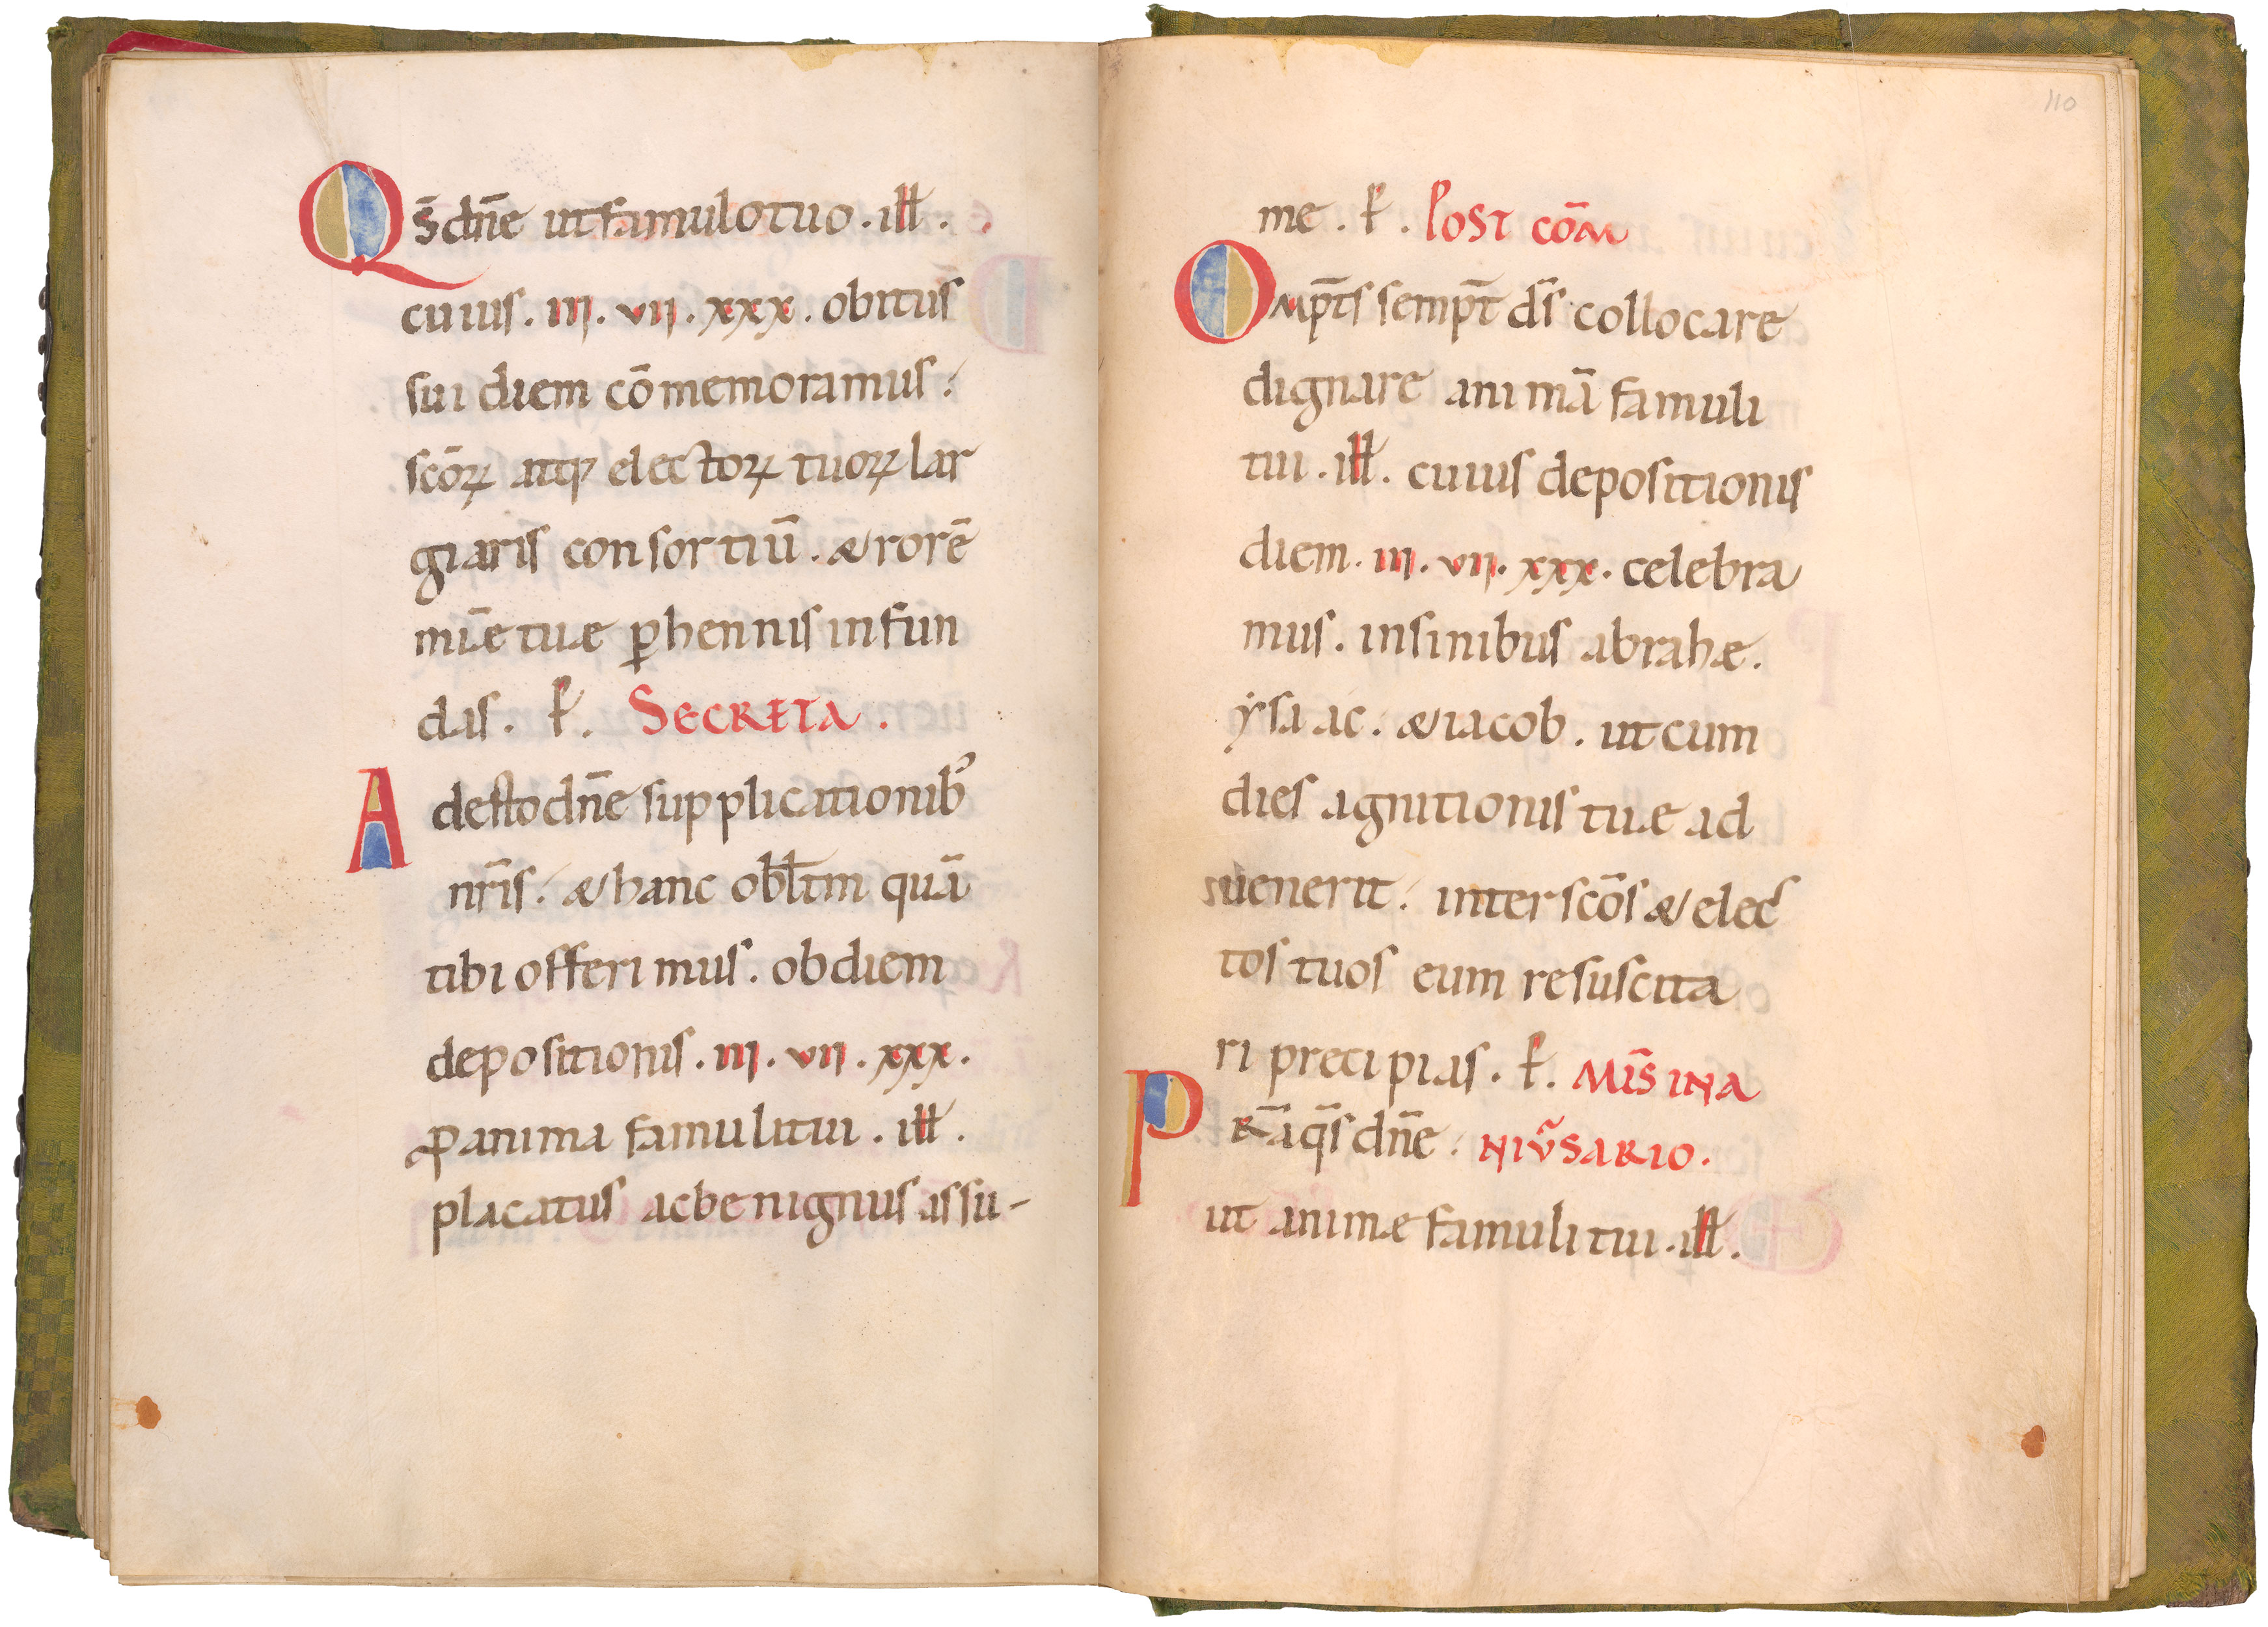 Qs̄ dn̄e ut famulo tuo . ill̄ .
cuius . III . VII . XXX . obitus
sui diem cōmemoramus .
scōꝝ atq; electoꝝ tuoꝝ lar
giaris consortiū . & rorē
mīæ tuæ ꝑhennis infun
das . ꝑ . SECRETA .
Adesto dn̄e supplicationib;
nr̄is . & hanc obl̄tm quā
tibi offerimus . ob diem
depositionis . III . VII . XXX .
ꝓ anima famuli tui . ill̄ .
placatus ac benignus assu-
110
me . ꝑ . POST CŌM
Omp̄ts semp̄t ds̄ collocare
dignare animā famuli
tui . ill̄ . cuius depositionis
diem . III . VII . XXX . celebra
mus . in sinibus abrahæ .
ẏsaac . & iacob . ut cum
dies agnitionis tuæ ad
uenerit . inter scōs & elec
tos tuos eum resuscita
ri precipias . ꝑ . MIS̄ IN A
PRĀ qs̄ dn̄e . NIV̄SARIO .
ut animæ famuli tui . ill̄ .